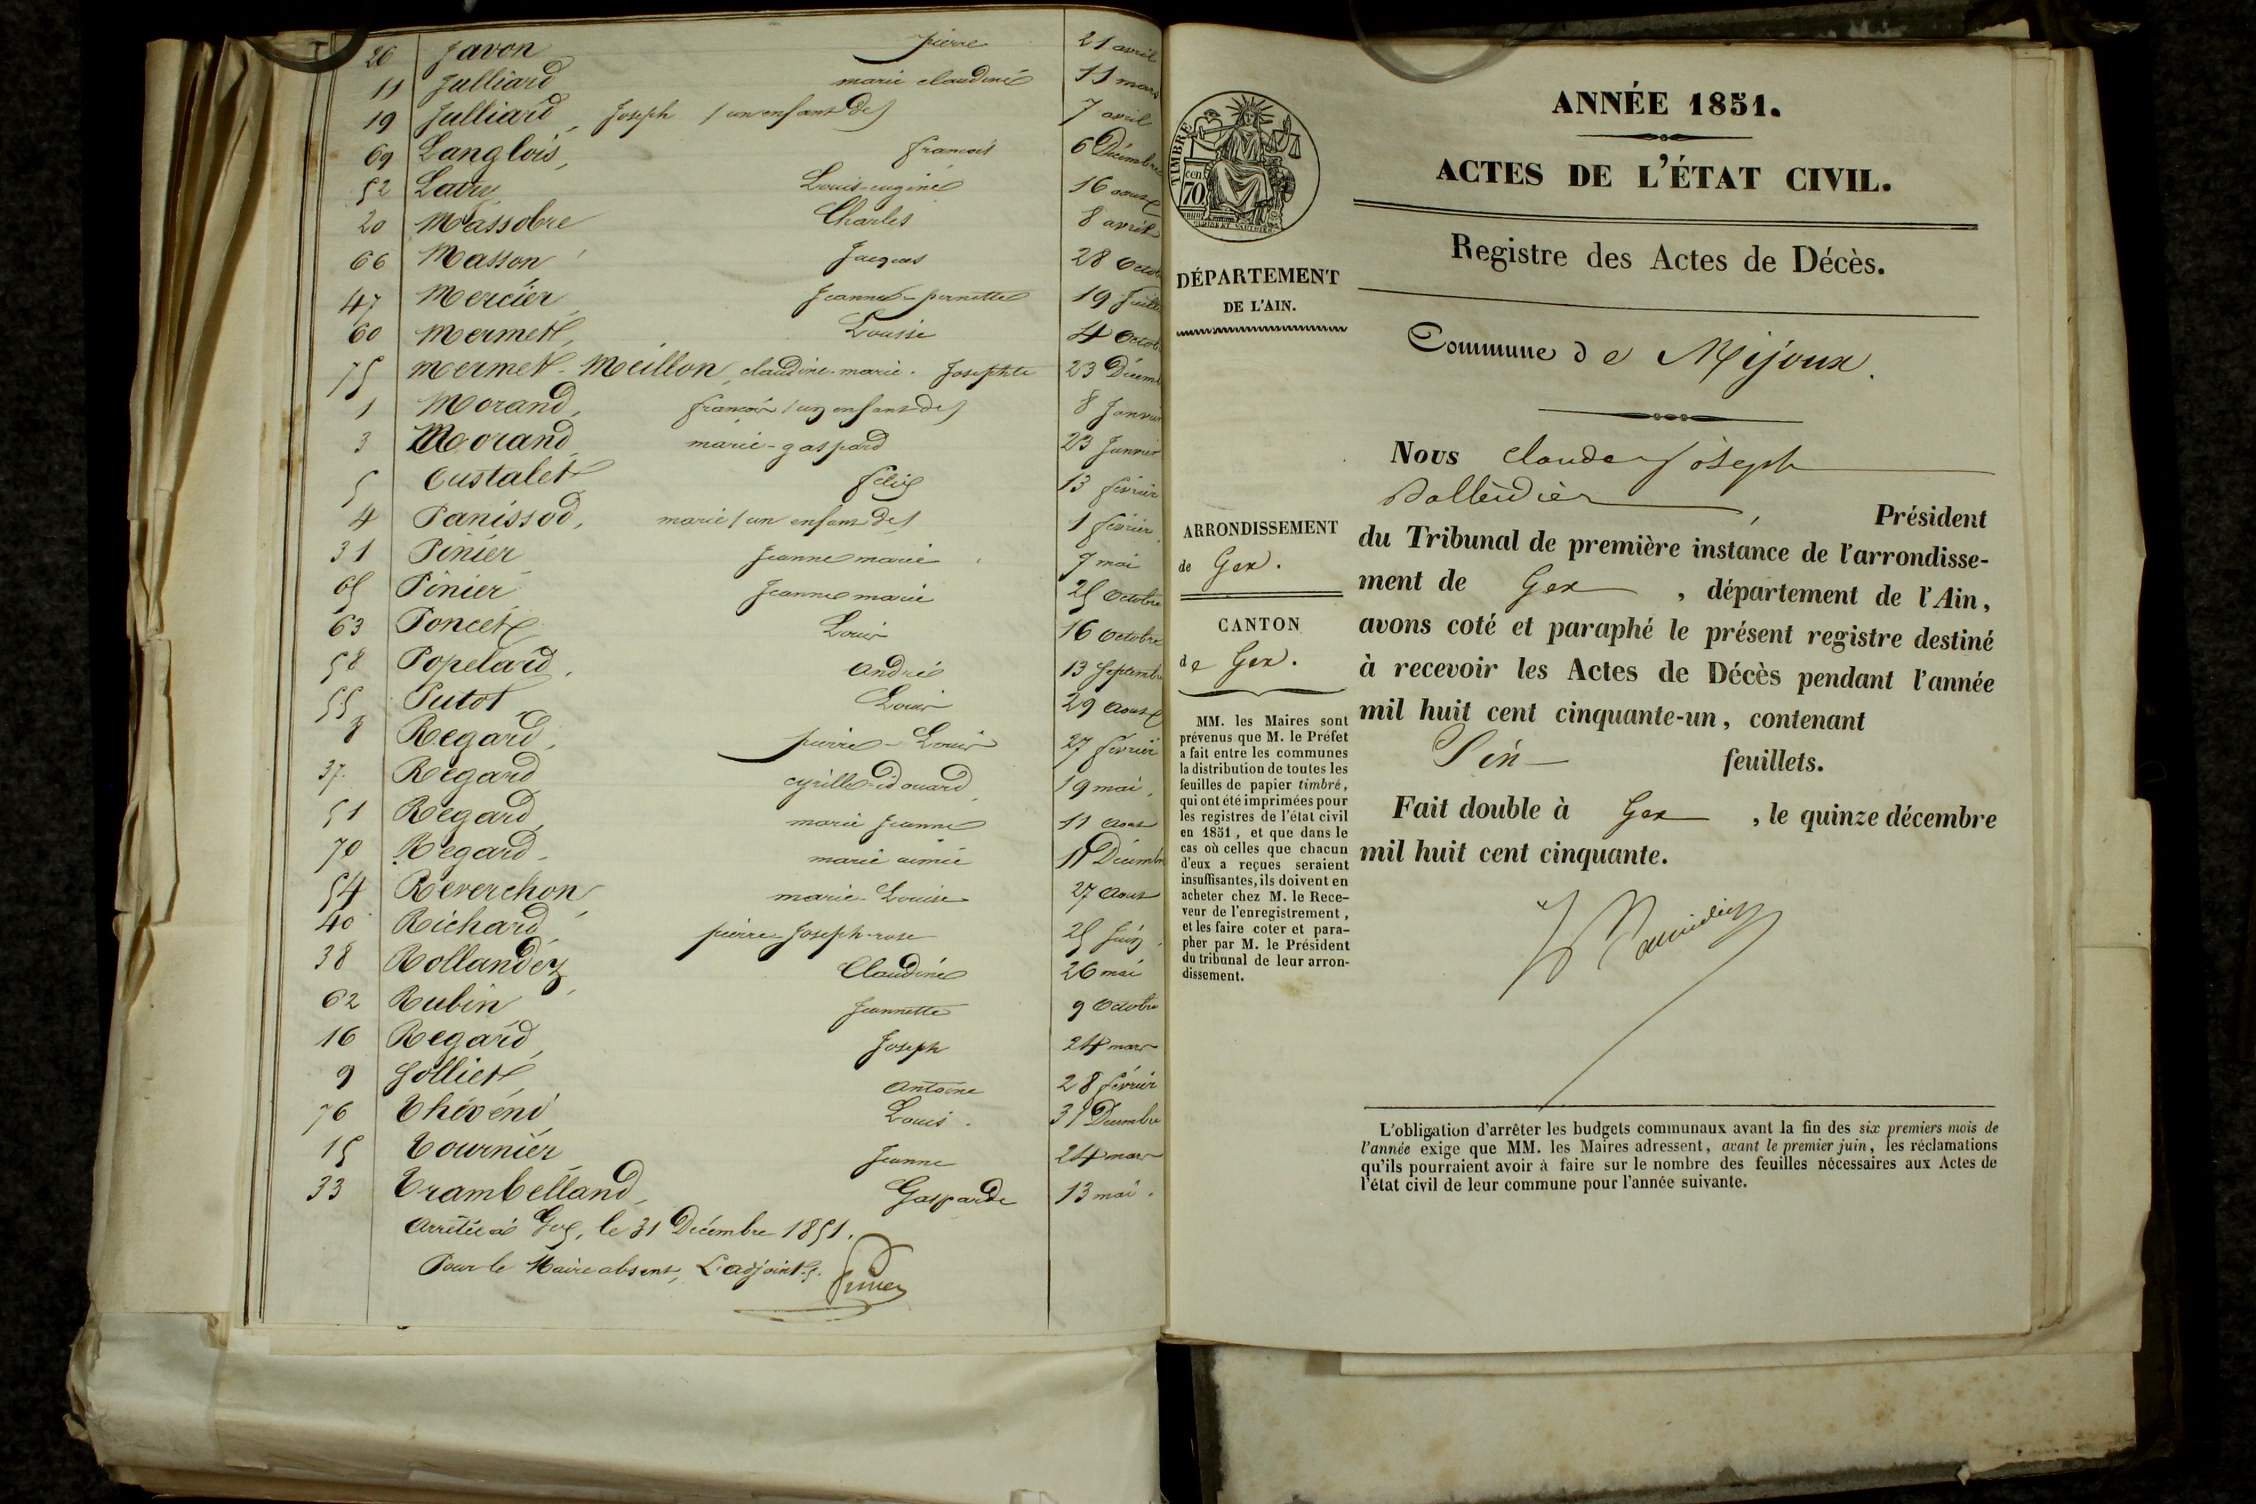 26 Javon pierre 21 avril
11 Julliard marie claudine 11 mars
19 Julliard, Joseph (un enfant de) 7 avril
69 Langlois, francois 6 Décembre
52 Lavy Louis-eugine 16 aoust
20 Massobre Charles 8 avril
66 Masson Jacques 28 Octob
47 Mercier Jeanne-pernette 19 Juille
60 Mermet, Louise 4 Octob
75 Mermet-Meillon, claudine-marie-Josephte 23 Décem
1 Morand, francois (un enfant de) 8 Janvier
3 Morand marie-gaspard 23 Janvier
5 Oustalet félix 13 février
4 Panissod, marie (un enfant de) 1 février
31 Pinier Jeanne marie 7 mai
65 Pinier Jeanne marie 25 Octobre
63 Poncet Louis 16 Octobre
58 Popelard, André 13 Septembre
55 Putot Louis 29 Aoust
8 Regard, pierre-Louis 27 février
37. Regard cyrille-édouard 19 mai.
51 Regard, marie Jeanne 11 Aout
70 Regard- marie aimée 11 Décembre
54 Reverchon marie-Louise 27 Aout
40 Richard pierre Joseph-rose 25 Juin
38 Rollandez, Claudine 26 mai
62 Rubin Jeannette 9 Octobre
16 Regard, Joseph 24 mars
9 Solliet, Antoine 28 février
76 Thévéni Louis. 31 Décembre
15 Tournier Jeanne 24 mars
33 Trambelland, Gasparde 13 mai.
Arrêtée à Gex, le 31 Décembre 1851.
Pour le Maire absent, L'adjoint.
TIMBRE
70 cen
ANNÉE 1851.
ACTES DE L'ÉTAT CIVIL.
Registre des Actes de Décès.
DÉPARTEMENT
DE L'AIN.
Commune de Mijoux.
ARRONDISSEMENT
de Gex.
CANTON
de Gex.
MM. les Maires sont
prévenus que M. le Préfet
a fait entre les communes
la distribution de toutes les
feuilles de papier timbré,
qui ont été imprimées pour
les registres de l'état civil
en 1851, et que dans le
cas où celles que chacun
d'eux a reçues seraient
insuffisantes, ils doivent en
acheter chez M. le Rece-
veur de l'enregistrement,
et les faire coter et para-
pher par M. le Président
du tribunal de leur arron-
dissement.
Nous Claude Joseph
, Président
du Tribunal de première instance de l'arrondisse-
ment de Gex, département de l'Ain,
avons coté et paraphé le présent registre destiné
à recevoir les Actes de Décès pendant l'année
mil huit cent cinquante-un, contenant
feuillets.
Fait double à Gex, le quinze décembre
mil huit cent cinquante.
L'obligation d'arrêter les budgets communaux avant la fin des six premiers mois de
l'année exige que MM. les Maires adressent, avant le premier juin, les réclamations
qu'ils pourraient avoir à faire sur le nombre des feuilles nécessaires aux Actes de
l'état civil de leur commune pour l'année suivante.